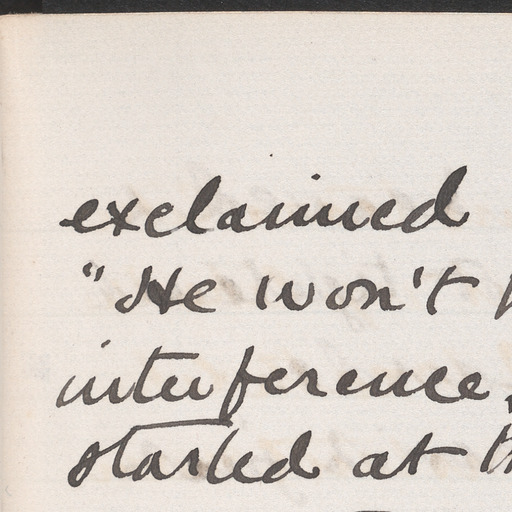 exclaimed
"He won't
interference,
started at